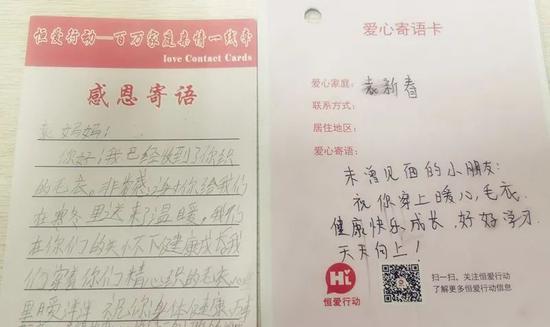 恒爱行动—百万家庭亲情一线牵
love Contact Cards
感恩寄语
袁妈妈：
你好！我已经收到了你织
的毛衣。非常感谢你给我们
在寒冬里送来了温暖。我们
在你们的关心下健康成长我
们穿着你们精心织的毛衣
里暖洋洋 祝你身体健康
爱心寄语卡
爱心家庭：袁新春
联系方式：
居住地区：
爱心寄语：
未曾见面的小朋友：
祝你穿上暖心毛衣
健康快乐成长，好好学习
天天向上！
Hi
恒爱行动
扫一扫、关注恒爱行动
了解更多恒爱行动信息